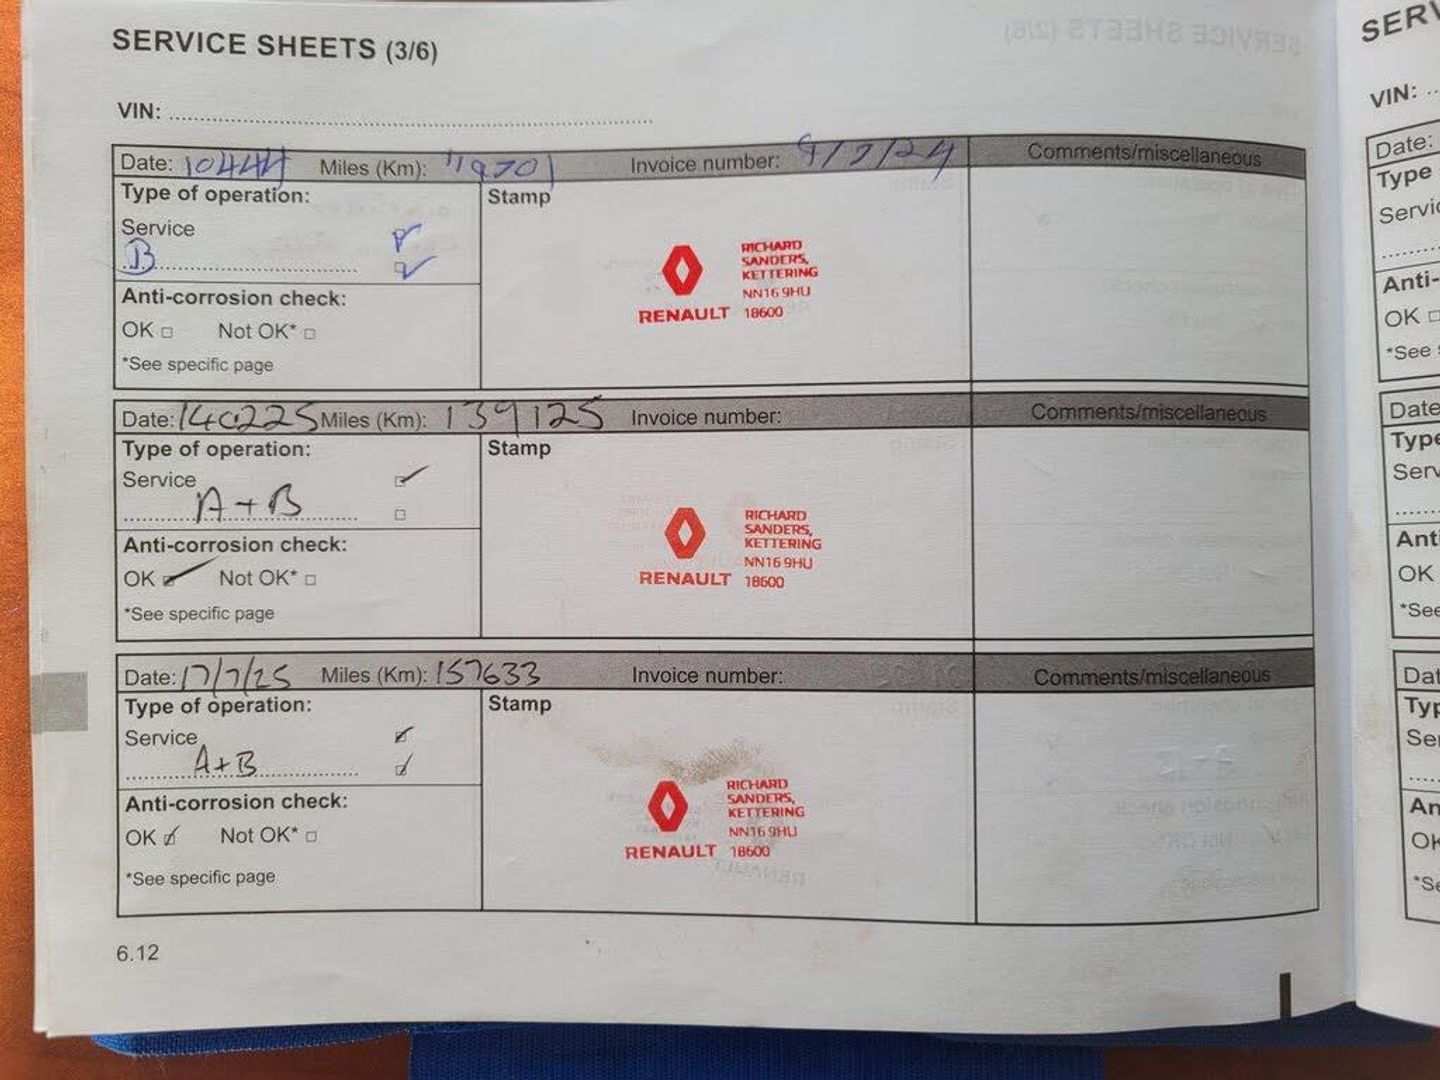 SERVICE SHEETS (3/6)
VIN:
Date: 10444 Miles (Km): 119701 Invoice number: 9/7/24 Comments/miscellaneous
Type of operation:
Stamp
Service
B
Anti-corrosion check:
OK Not OK*
*See specific page
RENAULT
RICHARD
SANDERS,
KETTERING
NN16 9HU
18600
Date: 140225 Miles (Km): 139125 Invoice number: Comments/miscellaneous
Type of operation:
Stamp
Service
A+B
Anti-corrosion check:
OK Not OK*
*See specific page
RENAULT
RICHARD
SANDERS,
KETTERING
NN16 9HU
18600
Date: 17/7/25 Miles (Km): 157633 Invoice number: Comments/miscellaneous
Type of operation:
Stamp
Service
A+B
Anti-corrosion check:
OK Not OK*
*See specific page
RENAULT
RICHARD
SANDERS,
KETTERING
NN16 9HU
18600
6.12
VIN:
Date:
Type
OK
*See
Date
Type
OK